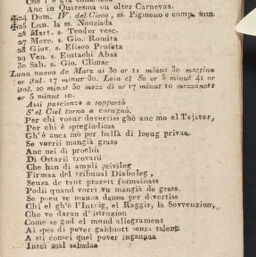 Anc in Quaresma ou olter Carnevas.
24 Dom. IV. del Cieco, ss. Pigmeno e comp. mm.
25 Lun. la ss. Nonziada
26 Mart. s. Teodor vesc.
27 Merc. s. Gio. Romita
28 Giov. s. Eliseo Profeta
29 Ven. s. Eustachi Abaa
30 Sab. s. Gio. Climac
Luna nuova de Marz ai 30 or 11 minut 30 mattina
or ital. 17 minut 30. Leva el So or 5 minut 41 or
ital. 10 minut 30 mezz dì or 17 minut 10 mezzanott
or 5 minut 10.
Avii pascienza a sopportà
S'el Ciel torna a caragnà.
Per chi voeur devertiss ghè anc mo el Tajster,
Per chi è spregiudicas
Gh'è ancs mò per ballà di loeug privaa.
Se vorrii mangià grass
Anc nei di prochii
Di Ostarii trovarii
Che han di ampli privileg
Firmaa del tribunal Diaboleg,
Senza de tant prezett formalisaa
Podii quand vorri vu mangià de grass.
Se poeu ve manca danee per divertiss
Chi el gh'è l'Intrig, el Raggir, la Sovvenzion,
Che ve daran d'istruzion
Come se god el mond allegrament
Ai spes di pover gabbnott senza talent
A sti consei quel pover ingannaa
Insci mal sabadaa